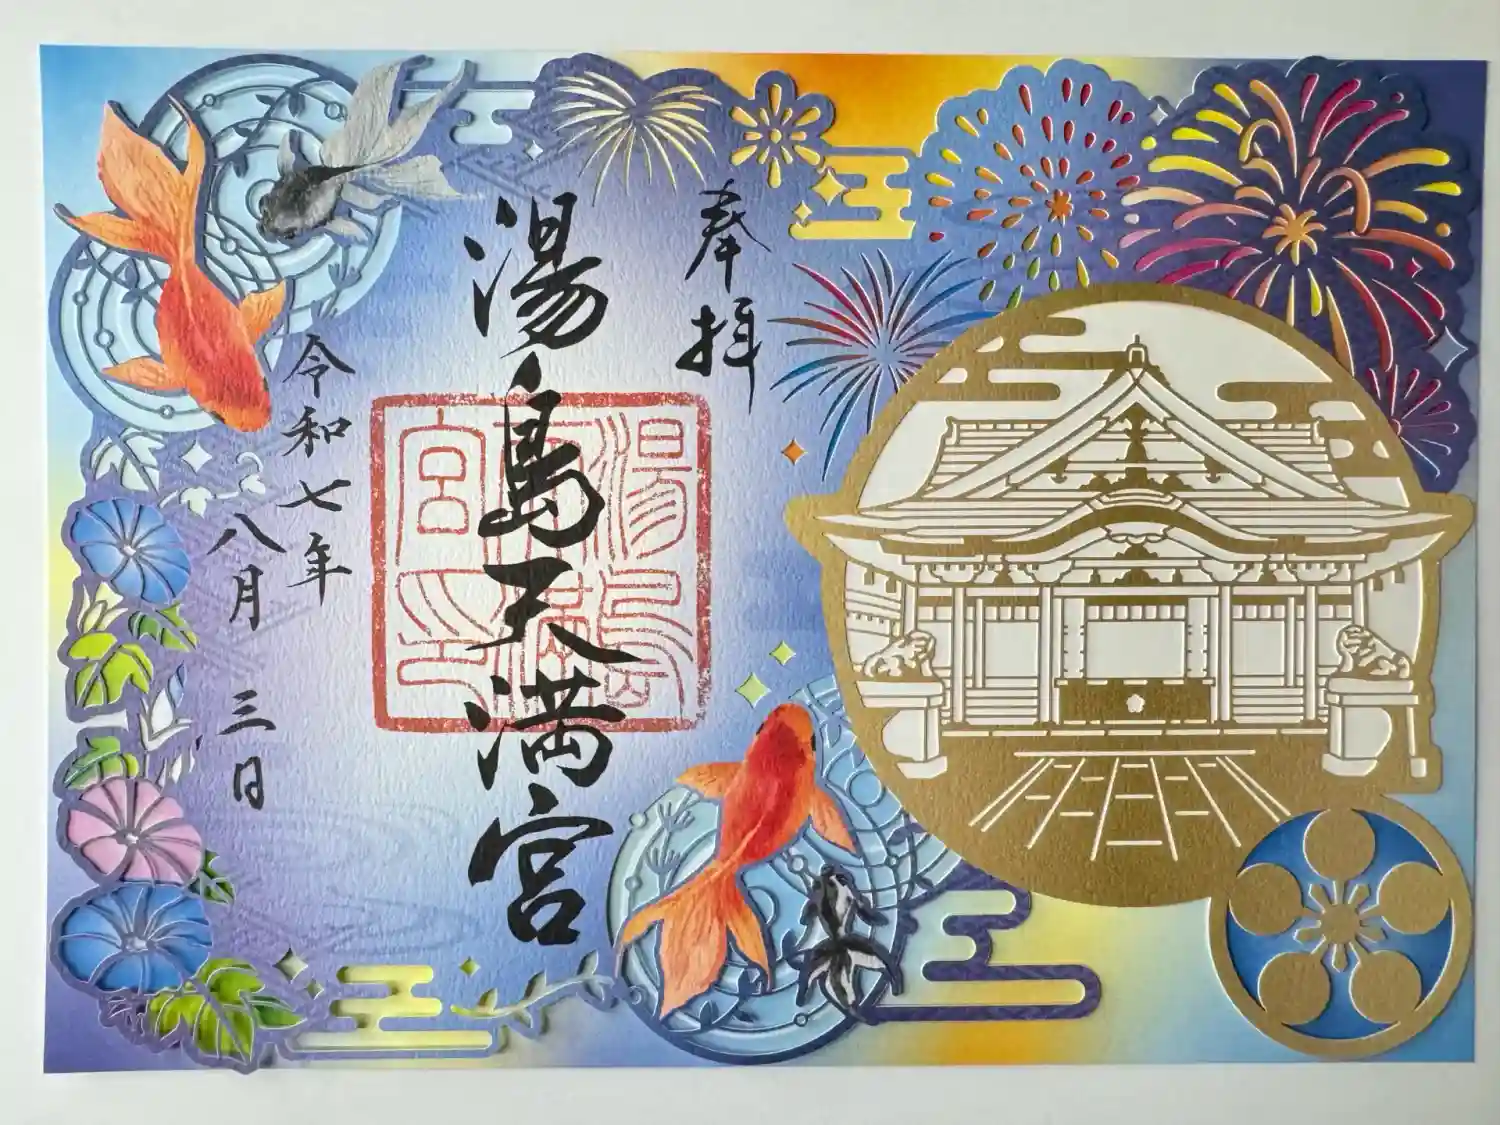 奉拝
湯島天満宮
湯島天満宮印
令和七年
八月三日